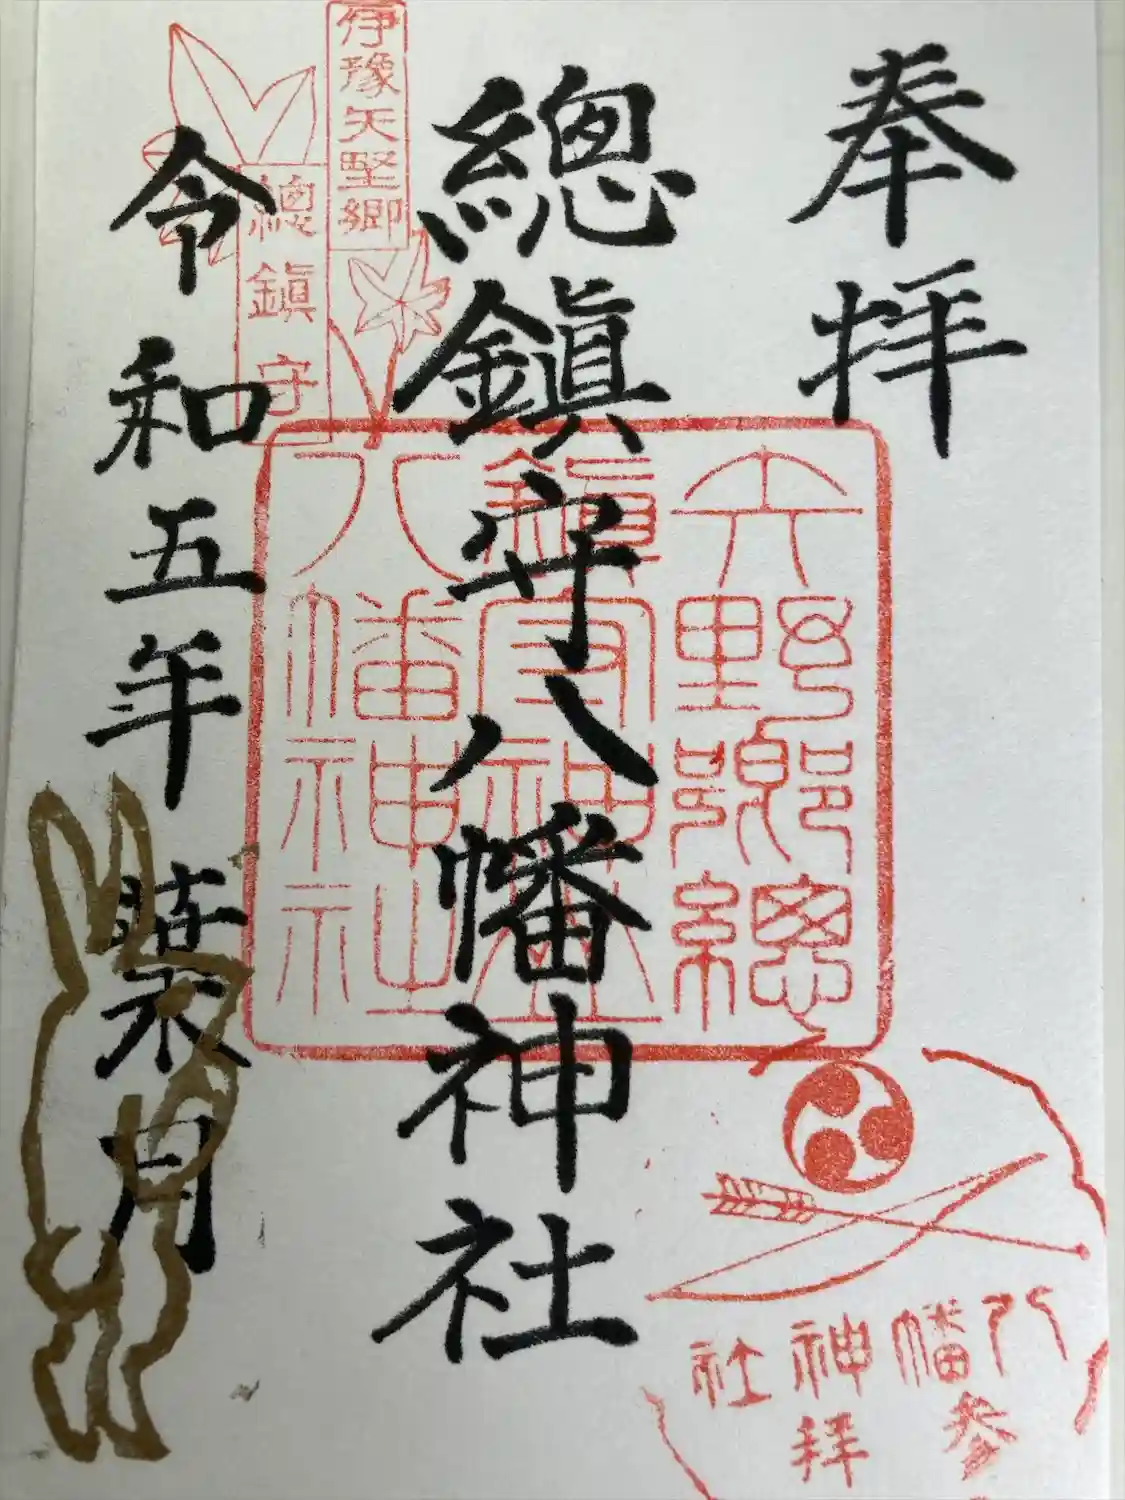 奉拝
總鎮守八幡神社
令和五年葉月
伊豫矢野郷
總鎮守
矢野郷總
鎮守神座
八幡神社
八幡神社
参拝